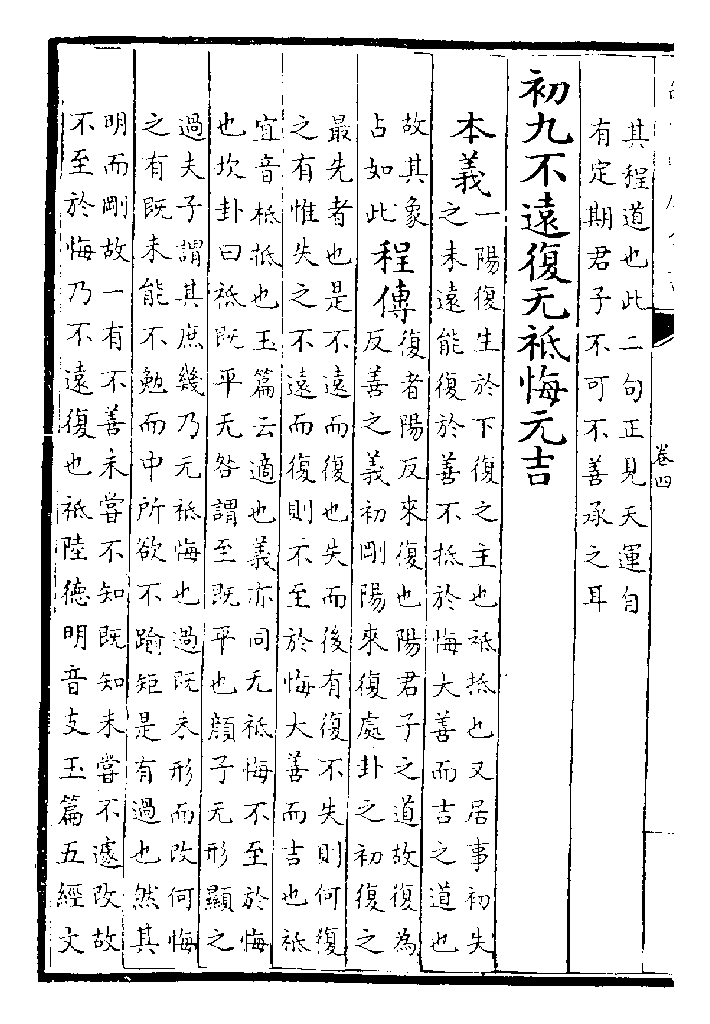 其程道也此二句正見天運自
有定期君子不可不善承之耳
初九不遠復无祗悔元吉
本義
一陽復生於下復之主也祗抵也又居事初失
之未遠能復於善不抵於悔大善而吉之道也
故其象
占如此
程傳
復者陽反來復也陽君子之道故復為
反善之義初剛陽來復處卦之初復之
最先者也是不遠而復也失而後有復不失則何復
之有惟失之不遠而復則不至於悔大善而吉也祗
宜音柢抵也玉篇云適也義亦同无祗悔不至於悔
也坎卦曰祗既平无咎謂至既平也顔子无形顯之
過夫子謂其庶幾乃无祗悔也過既未形而改何悔
之有既未能不勉而中所欲不踰矩是有過也然其
明而剛故一有不善未嘗不知既知未嘗不遽改故
不至於悔乃不遠復也祗陸德明音支玉篇五經文
卷四